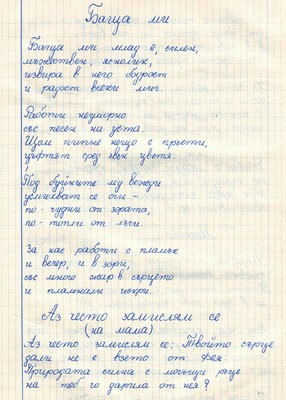 Баща ми
Баща ми млад е, силен,
мъжествен, яснолик,
извира в него бодрост
и радост всеки миг.
Работи неуморно
със песен на уста.
Щом пипне нещо с пръсти,
цъфтят сред звън цветя.
Под буйните му вежди
усмихват се очи -
по-чудни от зората,
по-топли от лъчи.
За нас работи с пламък
и вечер, и в зори,
със много жар в сърцето
и пламнали искри.
Аз често замислям се
(на мама)
Аз често замислям се: Твойто сърце
дали не е взето от фея.
Природата силна с могъщи ръце
на теб го дарила от нея?